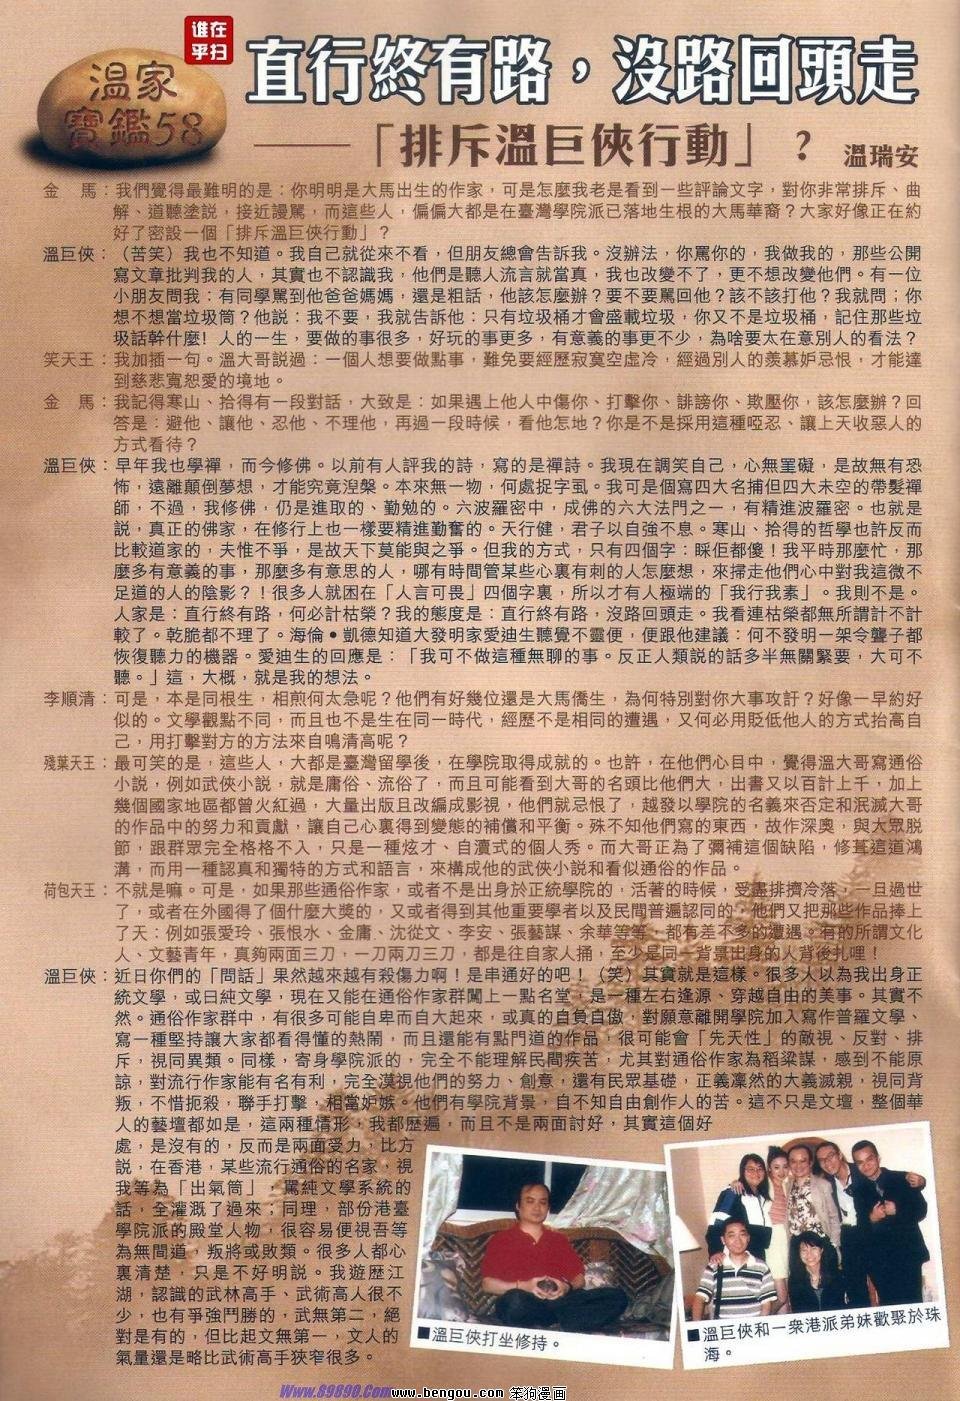 誰在
乎扫
溫家
寶鑑58
直行終有路，沒路回頭走
——「排斥溫巨俠行動」？ 溫瑞安
金　馬：我們覺得最難明的是：你明明是大馬出生的作家，可是怎麼我老是看到一些評論文字，對你非常排斥、曲
解、道聽塗説，接近謾罵，而這些人，偏偏大都是在臺灣學院派已落地生根的大馬華裔？大家好像正在約
好了密設一個「排斥溫巨俠行動」？
溫巨俠：（苦笑）我也不知道。我自己就從來不看，但朋友總會告訴我。沒辦法，你罵你的，我做我的，那些公開
寫文章批判我的人，其實也不認識我，他們是聽人流言就當真，我也改變不了，更不想改變他們。有一位
小朋友問我：有同學罵到他爸爸媽媽，還是粗話，他該怎麼辦？要不要罵回他？該不該打他？我就問；你
想不想當垃圾筒？他説：我不要，我就告訴他：只有垃圾桶才會盛載垃圾，你又不是垃圾桶，記住那些垃
圾話幹什麼！人的一生，要做的事很多，好玩的事更多，有意義的事更不少，為啥要太在意別人的看法？
笑天王：我加插一句。溫大哥説過：一個人想要做點事，難免要經歷寂寞空虛冷，經過別人的羨慕妒忌恨，才能達
到慈悲寬恕愛的境地。
金　馬：我記得寒山、拾得有一段對話，大致是：如果遇上他人中傷你、打擊你、誹謗你、欺壓你，該怎麼辦？回
答是：避他、讓他、忍他、不理他，再過一段時候，看他怎地？你是不是採用這種啞忍、讓上天收惡人的
方式看待？
溫巨俠：早年我也學禪，而今修佛。以前有人評我的詩，寫的是禪詩。我現在調笑自己，心無罣礙，是故無有恐
怖，遠離顛倒夢想，才能究竟涅槃。本來無一物，何處捉字虱。我可是個寫四大名捕但四大未空的帶髮禪
師，不過，我修佛，仍是進取的、勤勉的。六波羅密中，成佛的六大法門之一，有精進波羅密。也就是
説，真正的佛家，在修行上也一樣要精進勤奮的。天行健，君子以自強不息。寒山、拾得的哲學也許反而
比較道家的，夫惟不爭，是故天下莫能與之爭。但我的方式，只有四個字：睬佢都傻！我平時那麼忙，那
麼多有意義的事，那麼多有意思的人，哪有時間管某些心裏有刺的人怎麼想，來掃走他們心中對我這微不
足道的人的陰影？！很多人就困在「人言可畏」四個字裏，所以才有人極端的「我行我素」。我則不是。
人家是：直行終有路，何必計枯榮？我的態度是：直行終有路，沒路回頭走。我看連枯榮都無所謂計不計
較了。乾脆都不理了。海倫●凱德知道大發明家愛迪生聽覺不靈便，便跟他建議：何不發明一架令聾子都
恢復聽力的機器。愛迪生的回應是：「我可不做這種無聊的事。反正人類説的話多半無關緊要，大可不
聽。」這，大概，就是我的想法。
李順清：可是，本是同根生，相煎何太急呢？他們有好幾位還是大馬僑生，為何特別對你大事攻訐？好像一早約好
似的。文學觀點不同，而且也不是生在同一時代，經歷不是相同的遭遇，又何必用貶低他人的方式抬高自
己，用打擊對方的方法來自鳴清高呢？
殘葉天王：最可笑的是，這些人，大都是臺灣留學後，在學院取得成就的。也許，在他們心目中，覺得溫大哥寫通俗
小説，例如武俠小説，就是庸俗、流俗了，而且可能看到大哥的名頭比他們大，出書又以百計上千，加上
幾個國家地區都曾火紅過，大量出版且改編成影視，他們就忌恨了，越發以學院的名義來否定和泯滅大哥
的作品中的努力和貢獻，讓自己心裏得到變態的補償和平衡。殊不知他們寫的東西，故作深奧，與大眾脱
節，跟群眾完全格格不入，只是一種炫才、自瀆式的個人秀。而大哥正為了彌補這個缺陷，修葺這道鴻
溝，而用一種認真和獨特的方式和語言，來構成他的武俠小説和看似通俗的作品。
荷包天王：不就是嘛。可是，如果那些通俗作家，或者不是出身於正統學院的，活著的時候，受盡排擠冷落，一旦過世
了，或者在外國得了個什麼大獎的，又或者得到其他重要學者以及民間普遍認同的，他們又把那些作品捧上
了天：例如張愛玲、張恨水、金庸、沈從文、李安、張藝謀、余華等等，都有差不多的遭遇。有的所謂文化
人、文藝青年，真夠兩面三刀，一刀兩刀三刀，都是往自家人捅，至少是同一背景出身的人背後扎哩！
溫巨俠：近日你們的「問話」果然越來越有殺傷力啊！是串通好的吧！（笑）其實就是這樣。很多人以為我出身正
統文學，或曰純文學，現在又能在通俗作家群闖上一點名堂，是一種左右逢源、穿越自由的美事。其實不
然。通俗作家群中，有很多可能自卑而自大起來，或真的自負自傲，對願意離開學院加入寫作普羅文學、
寫一種堅持讓大家都看得懂的熱鬧，而且還能有點門道的作品，很可能會「先天性」的敵視、反對、排
斥，視同異類。同樣，寄身學院派的，完全不能理解民間疾苦，尤其對通俗作家為稻粱謀，感到不能原
諒，對流行作家能有名有利，完全漠視他們的努力、創意，還有民眾基礎，正義凜然的大義滅親，視同背
叛，不惜扼殺，聯手打擊，相當妒嫉。他們有學院背景，自不知自由創作人的苦。這不只是文壇，整個華
人的藝壇都如是，這兩種情形，我都歷遍，而且不是兩面討好，其實這個好
處，是沒有的，反而是兩面受力，比方
説，在香港，某些流行通俗的名家，視
我等為「出氣筒」，罵純文學系統的
話，全灌溉了過來；同理，部份港臺
學院派的殿堂人物，很容易便視吾等
為無間道，叛將或敗類。很多人都心
裏清楚，只是不好明説。我遊歷江
湖，認識的武林高手、武術高人很不
少，也有爭強鬥勝的，武無第二，絕
對是有的，但比起文無第一，文人的
氣量還是略比武術高手狹窄很多。
■溫巨俠打坐修持。
■溫巨俠和一衆港派弟妹歡聚於珠
海。
Www.89890.Com www.bengou.com 笨狗漫画